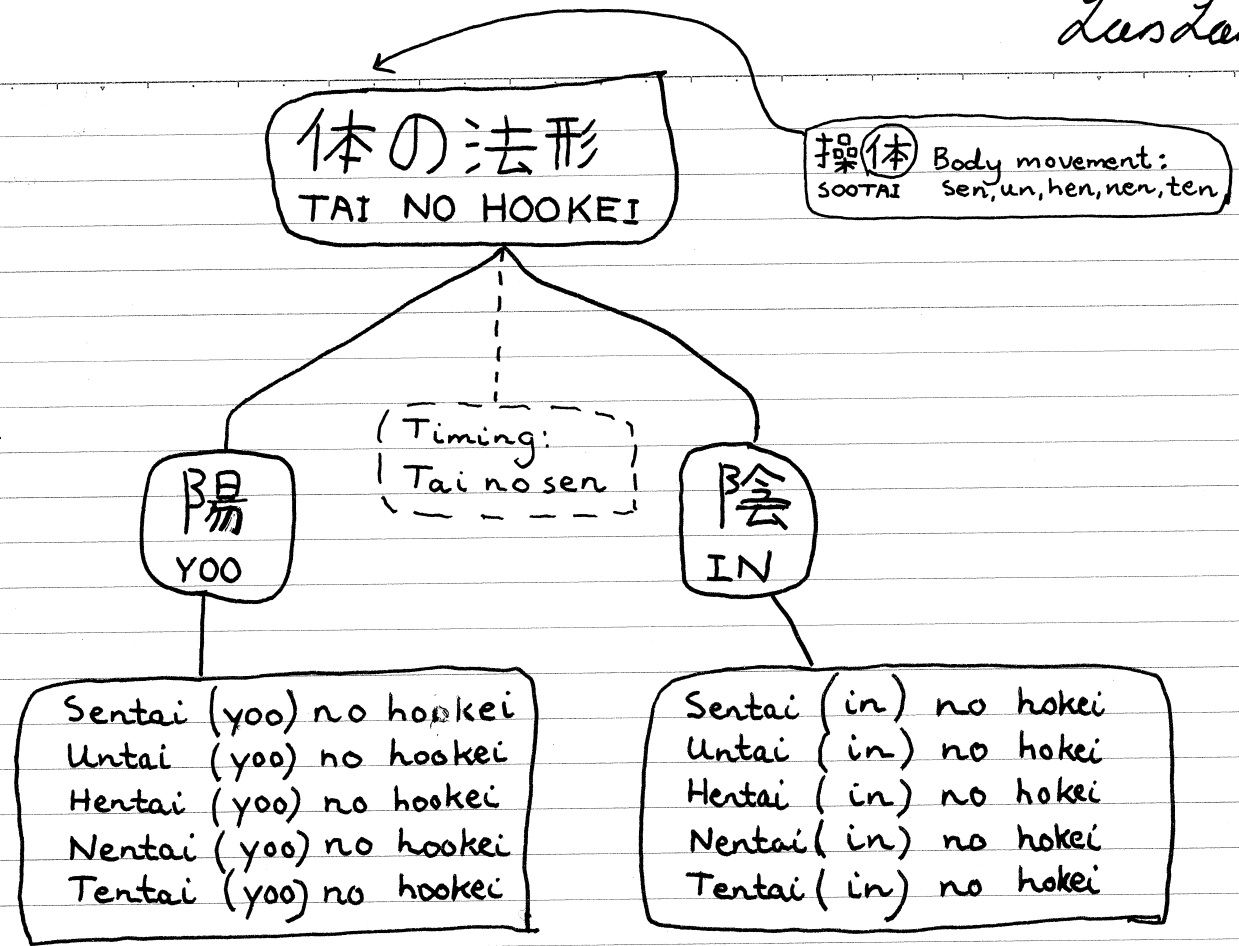 体の法形
TAI NO HOOKEI
操体 Body movement:
SOOTAI sen, un, hen, nen, ten
Timing:
Tai no sen
陽
YOO
陰
IN
Sentai (yoo) no hookei
Untai (yoo) no hookei
Hentai (yoo) no hookei
Nentai (yoo) no hookei
Tentai (yoo) no hookei
Sentai (in) no hokei
Untai (in) no hokei
Hentai (in) no hokei
Nentai (in) no hokei
Tentai (in) no hokei